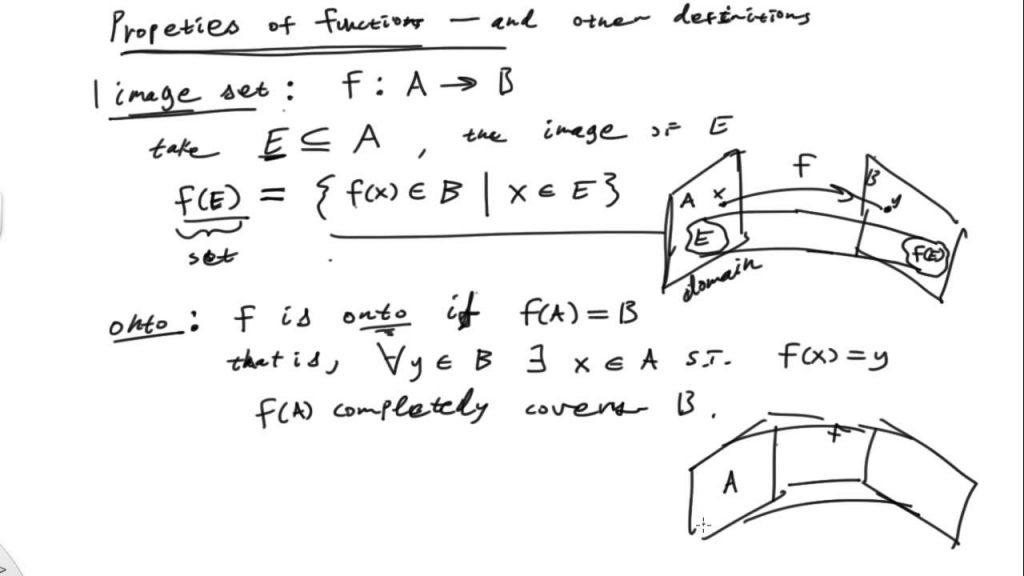 Propeties of functions — and other definitions
1 image set : f : A → B
take E ⊆ A , the image of E
f(E) = { f(x) ∈ B | x ∈ E }
set
f
A x
B
y
E
f(E)
domain
onto : f is onto if f(A) = B
that is, ∀y ∈ B ∃ x ∈ A s.t. f(x) = y
f(A) completely covers B .
f
A